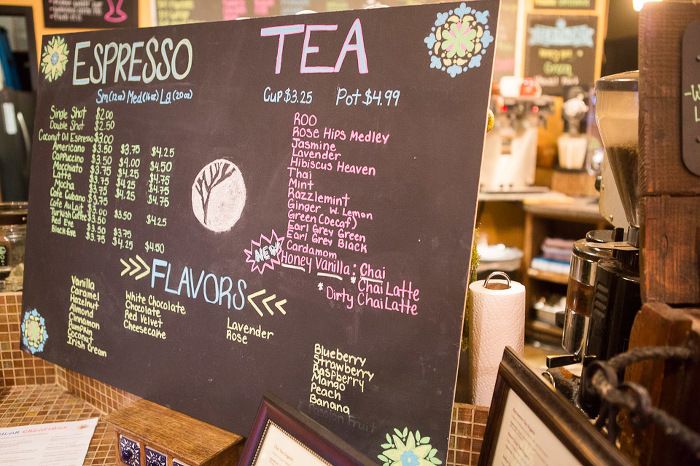 ESPRESSO
Sm (12oz) Med (16oz) La (20oz)
Single Shot $2.00
Double Shot $2.50
Coconut Oil Espresso $3.00
Americano $3.50 $3.75 $4.25
Cappuccino
Macchiato
Latte
Mocha
Cafe Cubano
Cafe Au Lait
Turkish Coffee
Red Eye
Black Eye $3.75 $4.25 $4.50
TEA
Cup $3.25 Pot $4.99
ROO
Rose Hips Medley
Jasmine
Lavender
Hibiscus Heaven
Thai
Mint
Razzlemint
Ginger w. Lemon
Green (Decaf)
Earl Grey Green
Earl Grey Black
Cardamom
NEW Honey Vanilla: Chai
* Chai Latte
* Dirty Chai Latte
>>> FLAVORS <<<
Vanilla
Caramel
Hazelnut
Almond
Cinnamon
Pumpkin
Coconut
Irish Cream
White Chocolate
Chocolate
Red Velvet
Cheesecake
Lavender
Rose
Blueberry
Strawberry
Raspberry
Mango
Peach
Banana